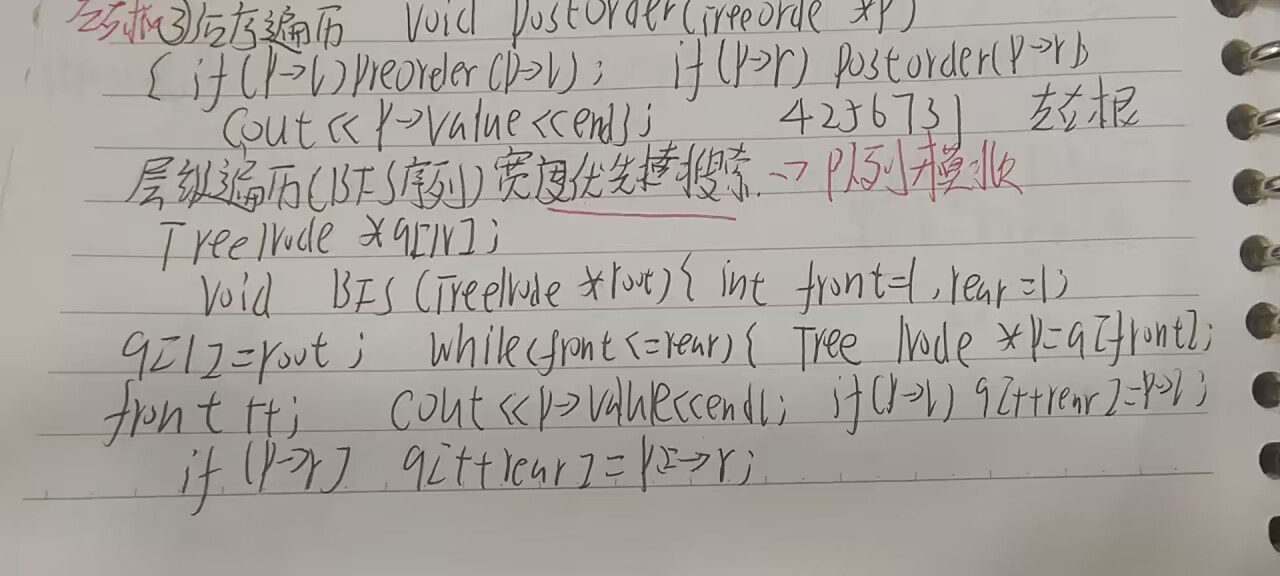 左右根③后序遍历 void postorder(Treeorde *p)
{ if(p→l)preorder(p→l); if(p→r) postorder(p→r);
cout<<p→value<<endl; 4256731 左右根
层级遍历(BFS序列)宽度优先搜索→队列模拟
TreeNode *q[N];
void BFS(TreeNode *root){ int front=1,rear=1;
q[1]=root; while(front<=rear){ Tree Node *p=q[front];
front++; cout<<p→value<<endl; if(p→l) q[++rear]=p→l;
if (p→r] q[++rear]=p→r;